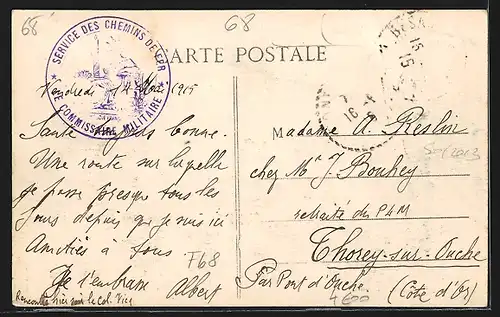 68
68
SERVICE DES CHEMINS DE FER
LE COMMISSAIRE MILITAIRE
CARTE POSTALE
Vendredi 14 Mai 1915
Santé toujours bonne.
Une route sur laquelle
je passe presque tous les
jours depuis que je suis ici
Amitiés à tous.
Je t'embrasse
Albert
F68
Rencontré hier soir le Col.
Madame A. Reslin
chez Mr J. Bouhey
retraité du PLM
Thorey-sur-Ouche
Par Pont d'Ouche.
(Côte d'Or)